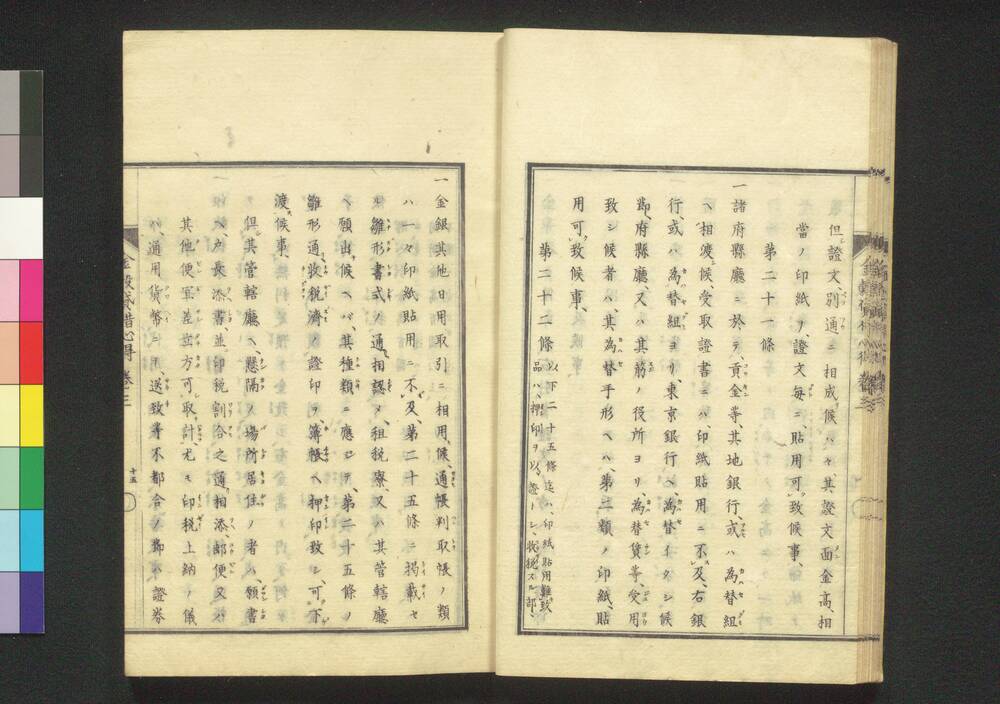 但證文、別通ニ相成候ハヾ、其證文面金高、相
當ノ印紙ヲ、證文毎ニ、貼用可致候事、
第二十一條
一諸府縣廳ニ於テ、貢金等、其地銀行、或ハ為替組
ヘ相渡候、受取證書ニハ、印紙貼用ニ不及、右銀
行、或ハ為替組ヨリ、東京銀行ヘ、為替イタシ候
節、府縣廳、又ハ其筋ノ役所ヨリ為替賃等、受用
致シ候者ハ、其為替手形ヘハ、第二類ノ印紙、貼
用可致候事、
第二十二條 以下二十五條迄ハ、印紙貼用難致
品ハ、押印ヲ以、證トシ、收税スル部、
一金銀其他日用取引ニ相用候、通帳判取帳ノ類
ハ一々印紙貼用ニ不及、第二十五條ニ掲載セ
ル雛形書式ノ通相認メ、租税寮又ハ其管轄廳
ヘ願出候ヘバ、其種類ニ應シテ、第二十五條ノ
雛形通、收税濟ノ證印ヲ、簿帳ヘ押印致シ、可下
渡候事、
但其管轄廳ヘ、懸隔ノ場所居住ノ者ハ、願書
ヘ、戸長添書、並印税割合之通相添、郵便又ハ
其他便宜差立方可取計、尤モ印税上納ノ儀
ハ、通用貨幣ニテ、送致等不都合ノ節ハ證券
金穀貸借心得 卷三
十五